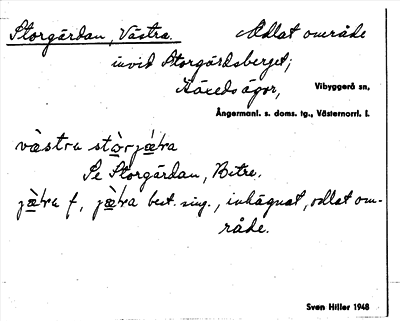 Storgärdan, Västra. Odlat område
invid Storgärdsberget;
ägor, Vibyggerå sn,
Ångermanl. s. doms. tg., Västernorrl. l.
västra stòrjæ̀ra
Se Storgärdan, Bitre.
jæ̀ra f, jæ̀ra best. sing., inhägnat, odlat om-
råde.
Sven Hiller 1948